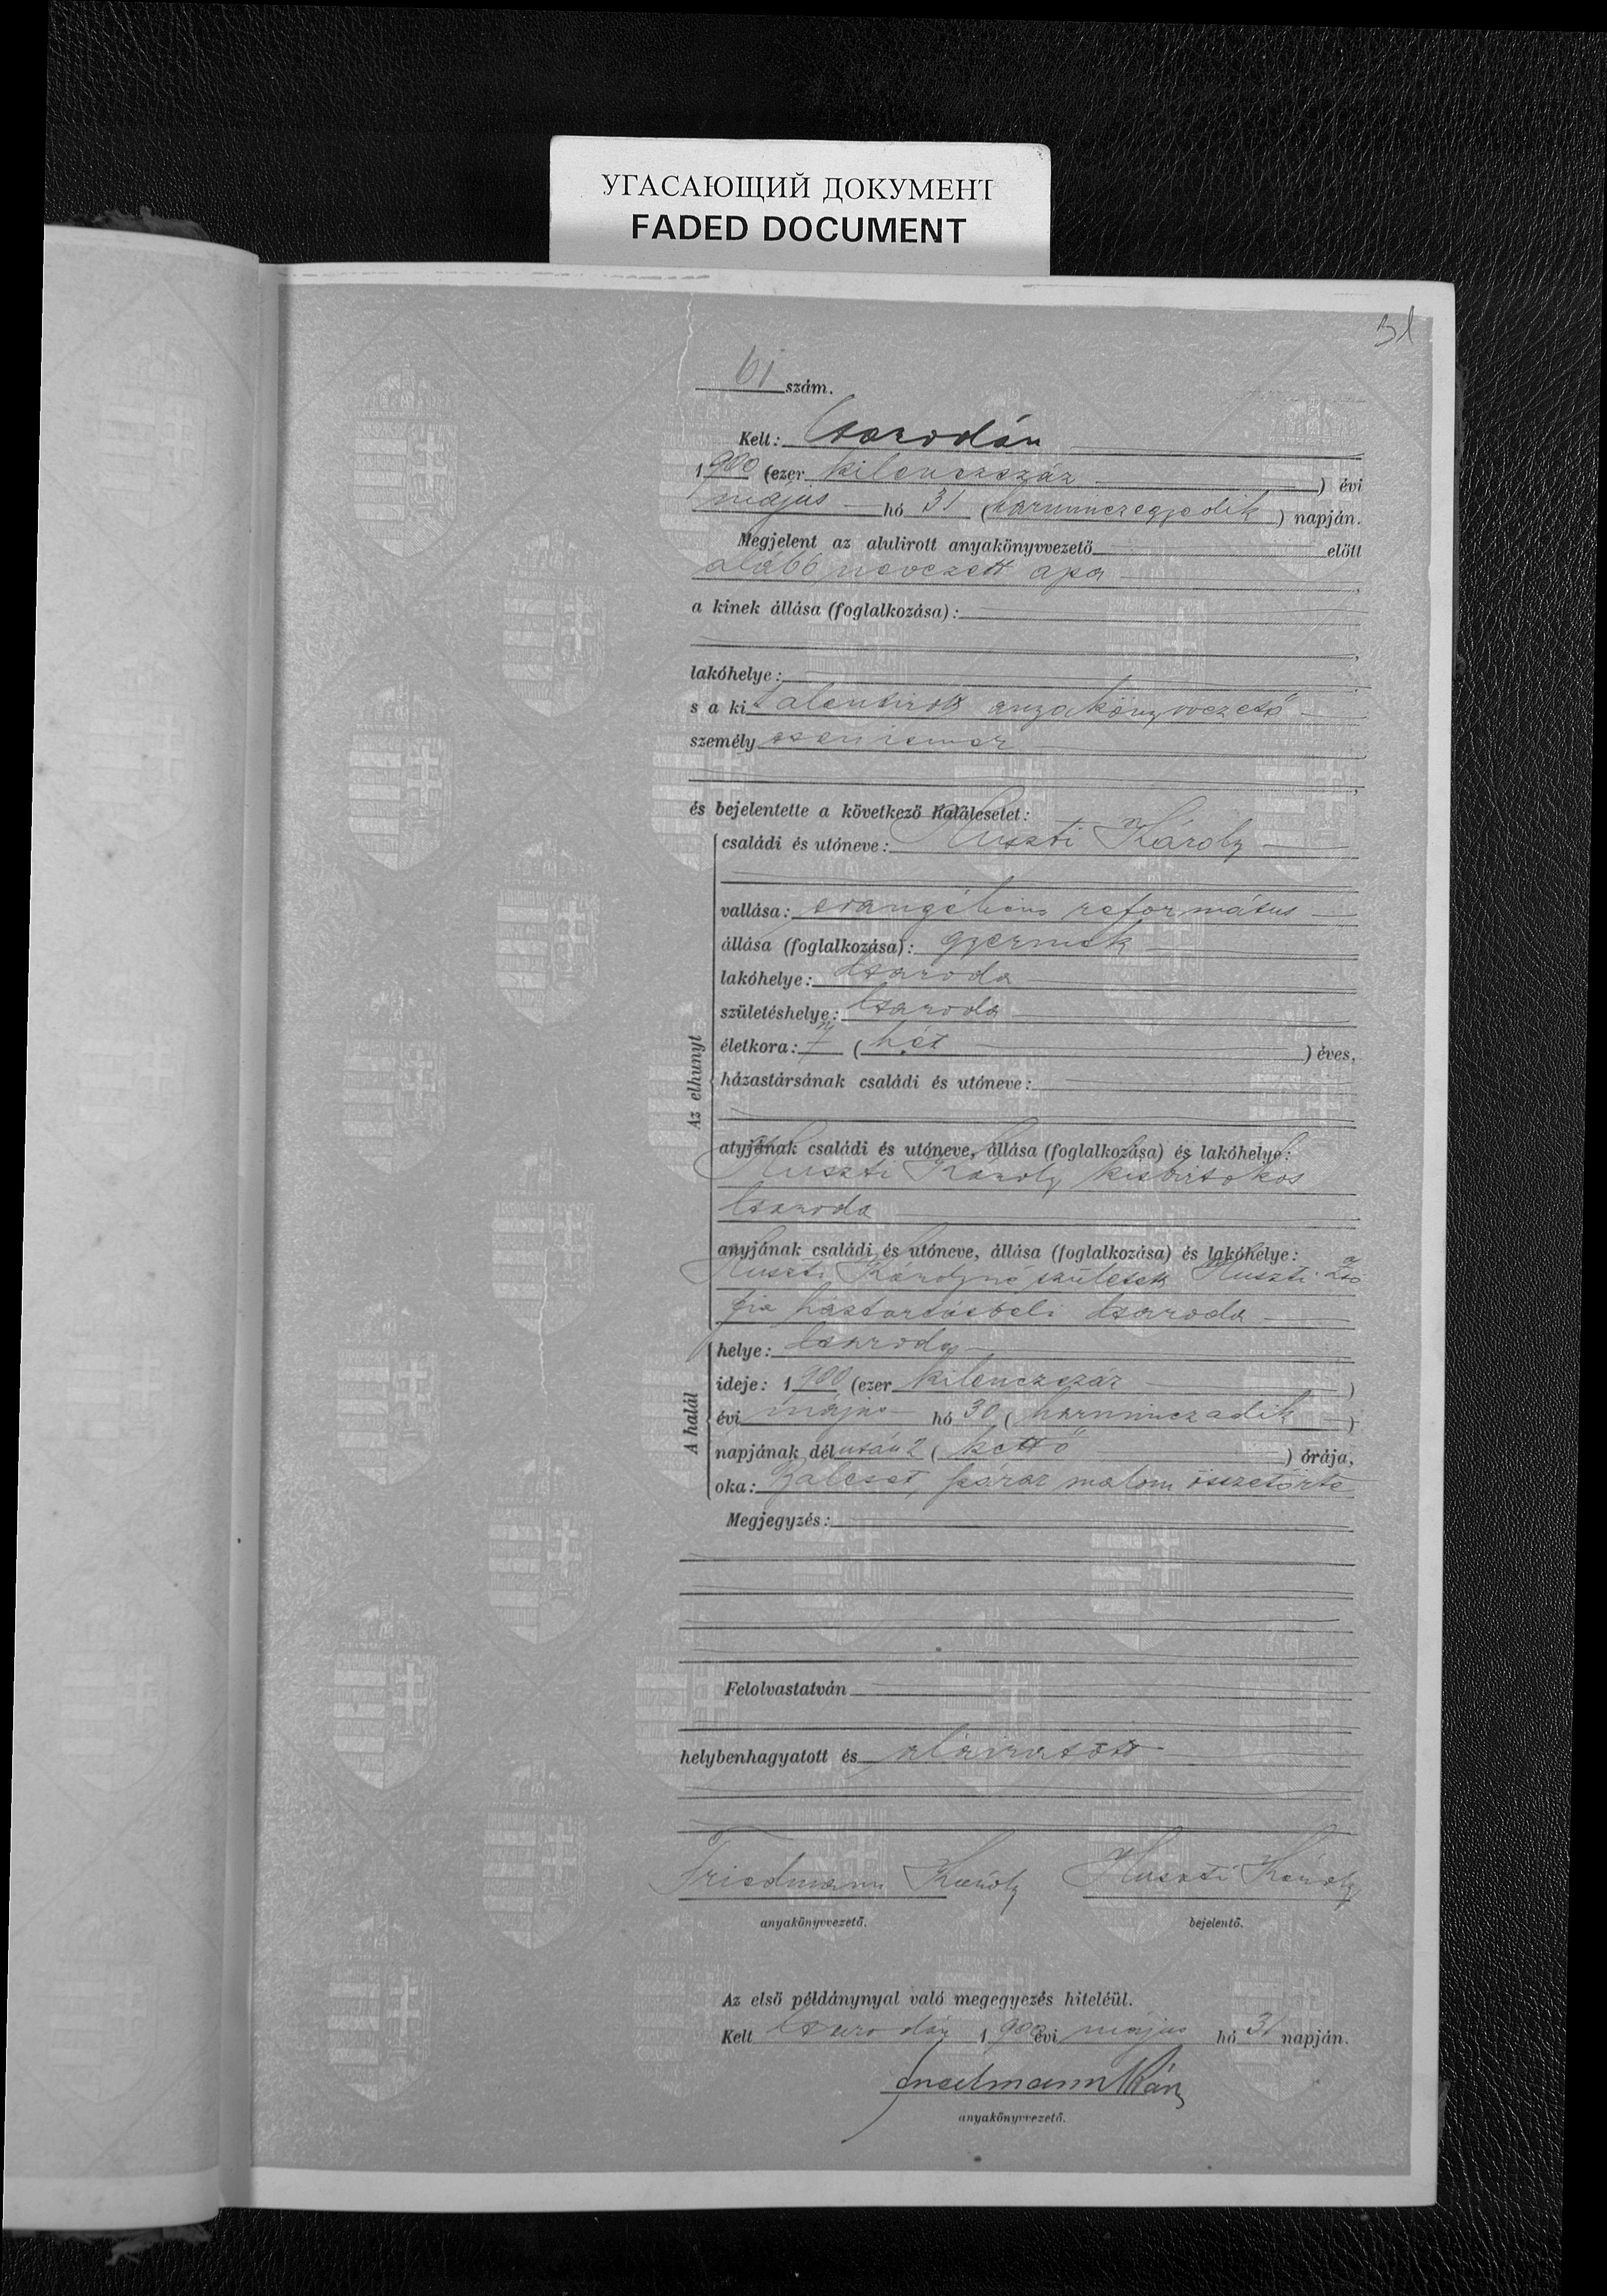 УГАСАЮЩИЙ ДОКУМЕНТ
FADED DOCUMENT
31
61 szám.
Kelt: Csarodán
1900 (ezer kilenczszáz ) évi
május hó 31 (harminczegyedik ) napján.
Megjelent az alulirott anyakönyvvezető előtt
alább nevezett apa ,
a kinek állása (foglalkozása):
,
lakóhelye:
s a kit alulirott anyakönyvvezető
személy szerint ismer
,
és bejelentette a következő halálesetet:
Az elhunyt
családi és utóneve: Huszti Károly
vallása: evangélicus református
állása (foglalkozása): gyermek
lakóhelye: Csaroda
születéshelye: Csaroda
életkora: 7 ( hét ) éves,
házastársának családi és utóneve:
atyjának családi és utóneve, állása (foglalkozása) és lakóhelye:
Huszti Károly kisbirtokos
Csaroda
anyjának családi és utóneve, állása (foglalkozása) és lakóhelye:
Huszti Károlyné született Huszti Zsó
fia háztartásbeli Csaroda
A halál
helye: Csaroda
ideje: 1900 (ezer kilenczszáz )
évi május hó 30 ( harminczadik )
napjának délután 2 ( kettő ) órája,
oka: Baleset, száraz malom összetörte
Megjegyzés:
Felolvastatván
helybenhagyatott és aláiratott
Friedmann Károly Huszti Károly
anyakönyvvezető. bejelentő.
Az első példánynyal való megegyezés hiteléül.
Kelt Csarodán 1900 évi május hó 31 napján.
anyakönyvvezető.